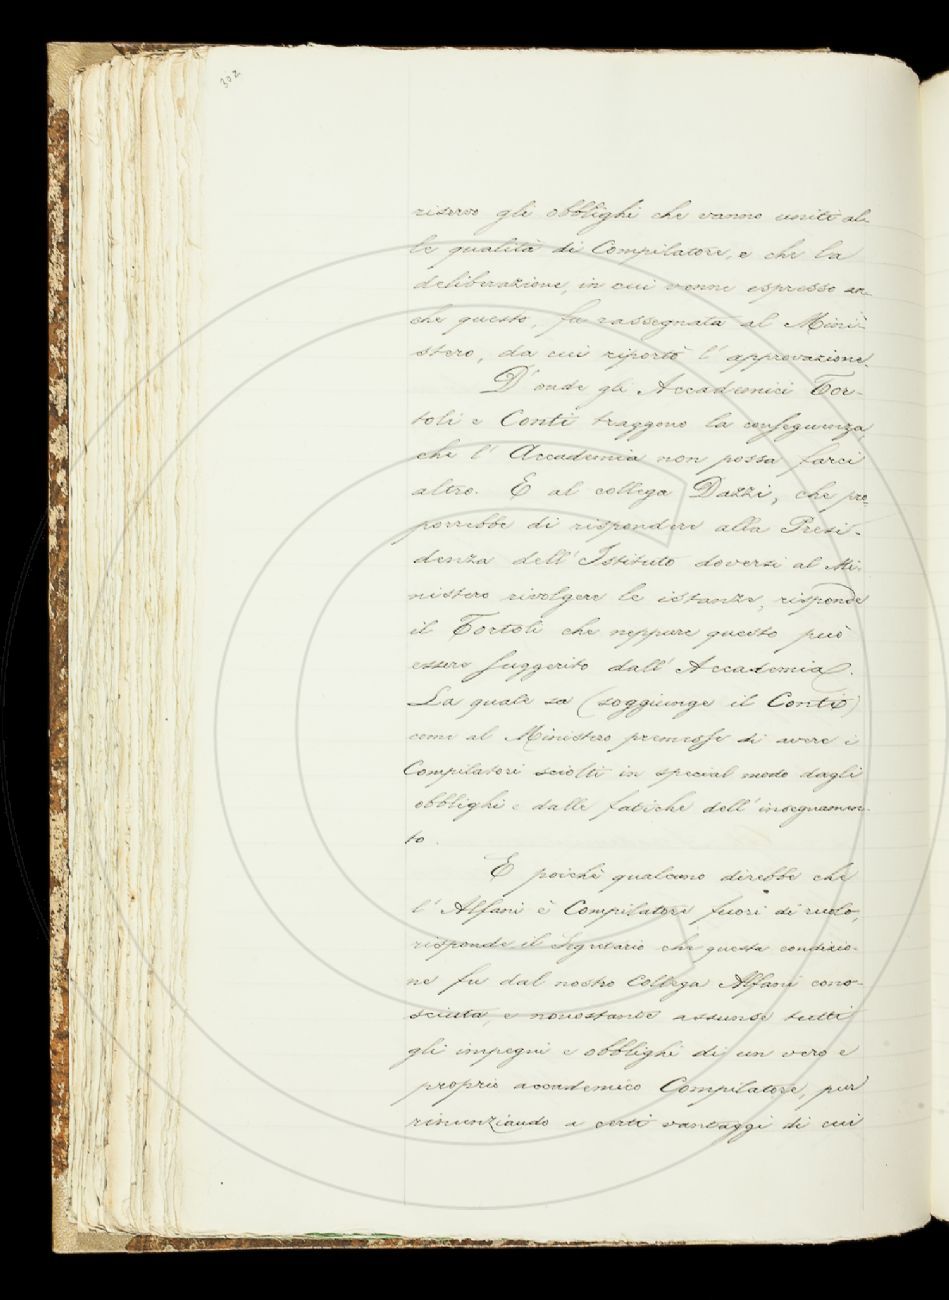 302
riserve gli obblighi che vanno uniti al-
le qualità di Compilatore, e che la
deliberazione, in cui venne espresso an-
che questo, fu rassegnata al Mini-
stero, da cui riportò l'approvazione.
D'onde gli Accademici Tor-
toli e Conti traggono la conseguenza,
che l'Accademia non possa farci
altro. E al collega Dazzi, che pro-
porrebbe di rispondere alla Presi-
denza dell'Istituto doversi al Mi-
nistero rivolgere le istanze, risponde
il Tortoli che neppure questo può
essere suggerito dall'Accademia.
La quale sa (soggiunge il Conti)
come al Ministero premesse di avere i
Compilatori sciolti in special modo dagli
obblighi e dalle fatiche dell'insegnamen-
to.
E poichè qualcuno direbbe che
l'Alfani è Compilatore fuori di ruolo,
risponde il Segretario che questa condizio-
ne fu dal nostro Collega Alfani cono-
sciuta, e nonostante assunse tutti
gli impegni e obblighi di un vero e
proprio accademico Compilatore, pur
rinunziando a certi vantaggi di cui